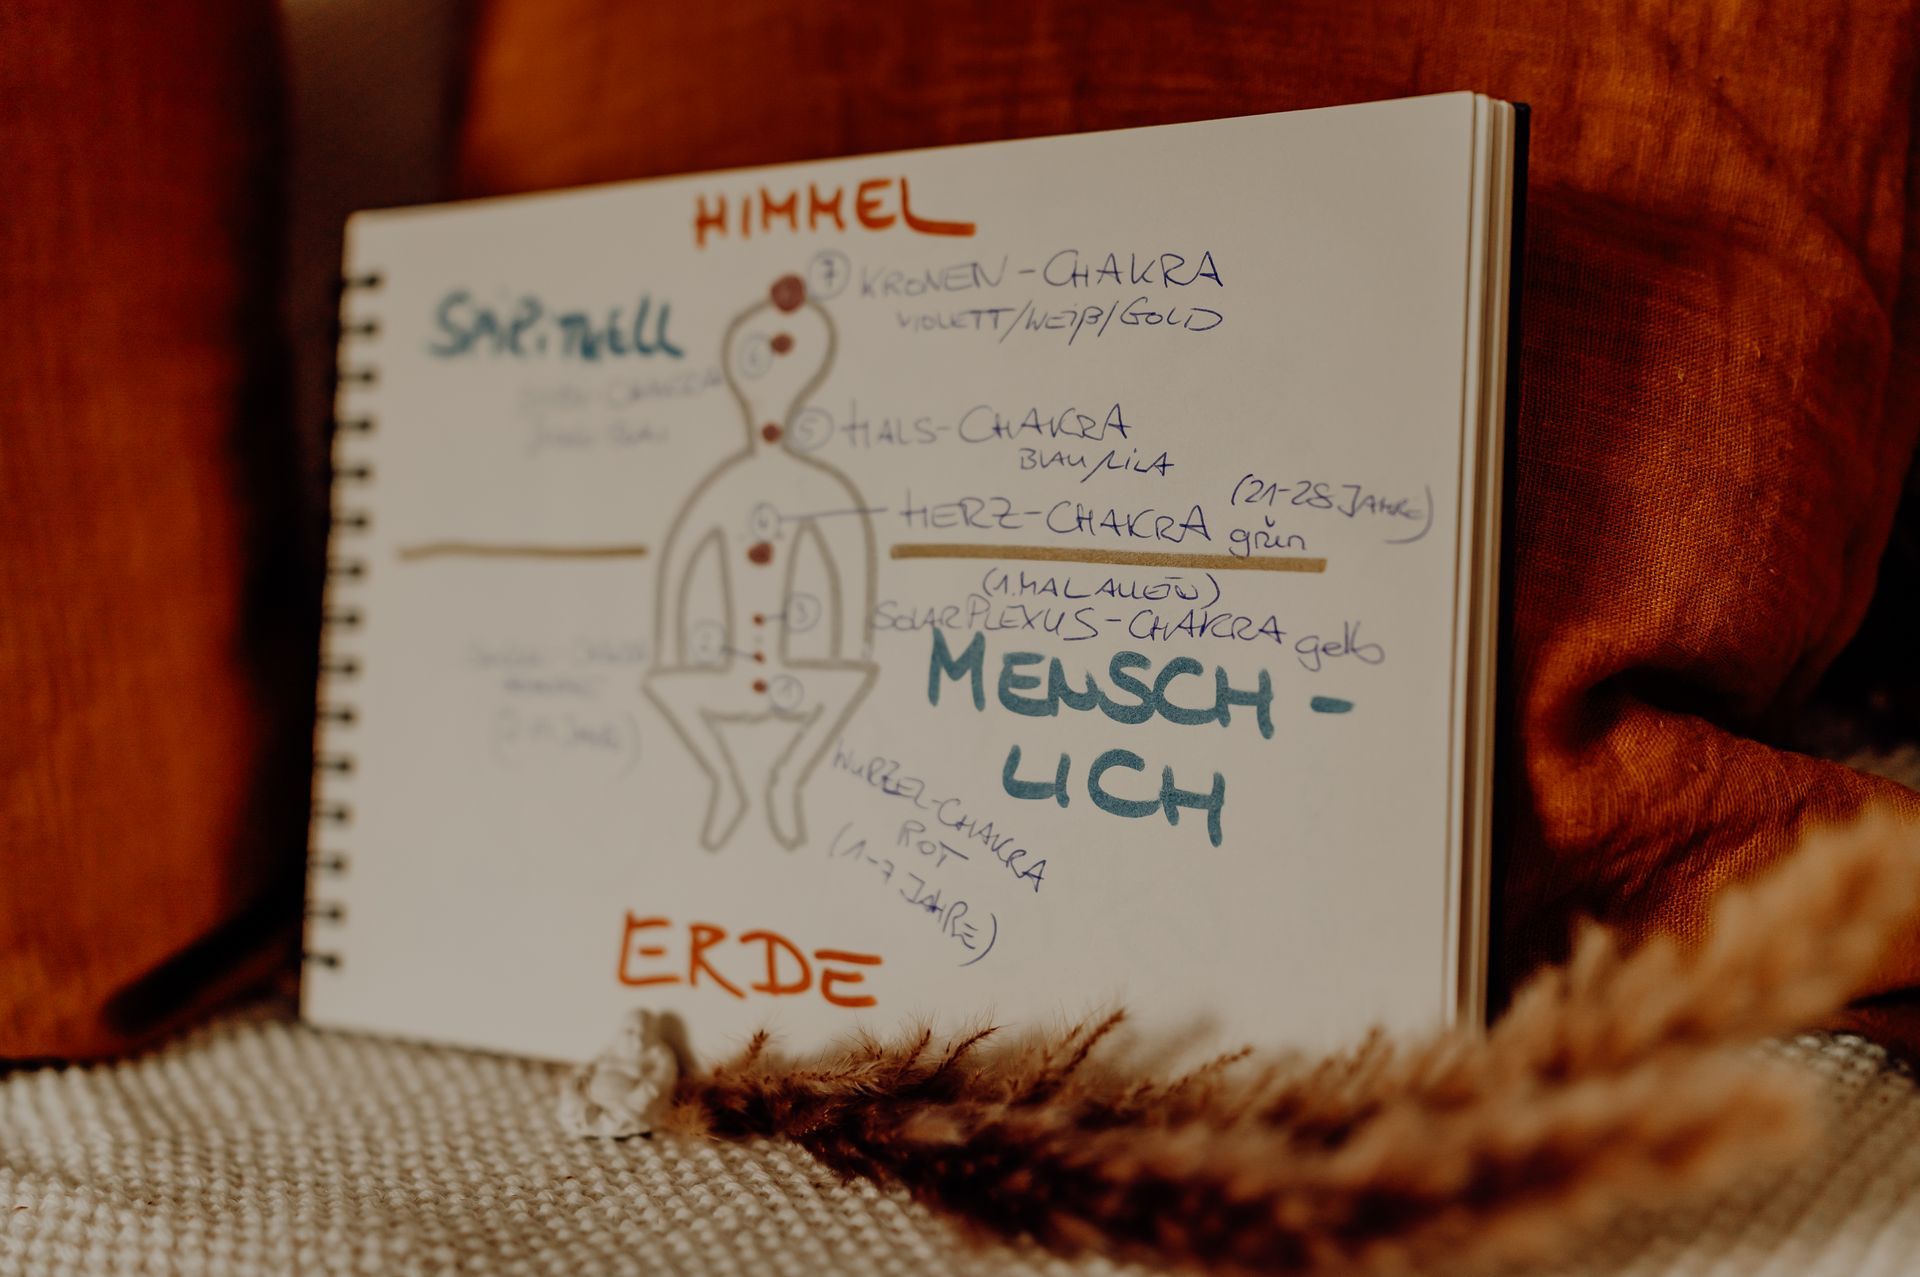 HIMMEL
7 KRONEN-CHAKRA
VIOLETT/WEIß/GOLD
SPIRITUELL
6
5 HALS-CHAKRA
BLAU/LILA
4 HERZ-CHAKRA (21-28 JAHRE)
grün
(1. MAL ALLEIN)
3 SOLARPLEXUS-CHAKRA gelb
2
MENSCH-
LICH
1
WURZEL-CHAKRA
ROT
(1-7 JAHRE)
ERDE